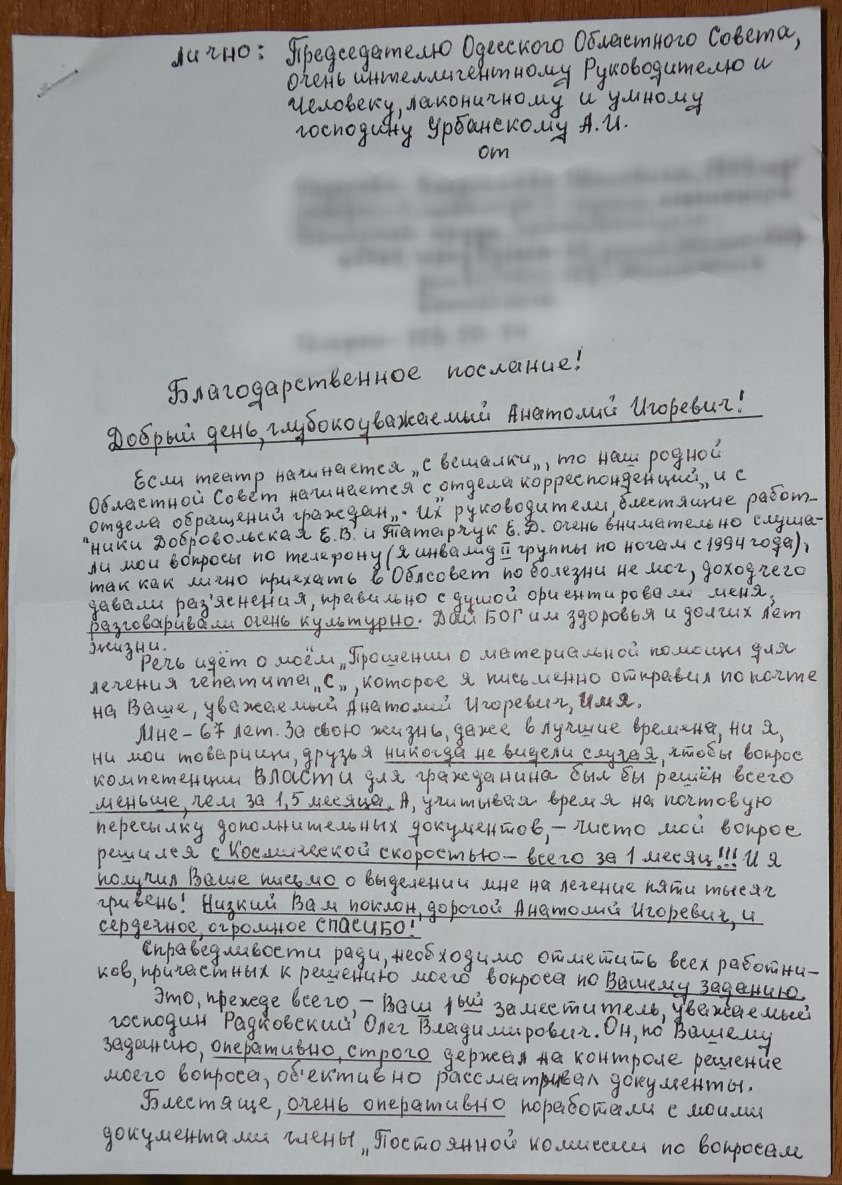 лично: Председателю Одесского Областного Совета,
очень интеллигентному Руководителю и
Человеку, лаконичному и умному
господину Урбанскому А.И.
от
Благодарственное послание!
Добрый день, глубокоуважаемый Анатолий Игоревич!
Если театр начинается „с вешалки„, то наш родной
Областной Совет начинается с „отдела корреспонденций„ и с
„отдела обращений граждан„. Их руководители, блестящие работ-
ники Добровольская Е.В. и Татарчук Е.Д. очень внимательно слуша-
ли мои вопросы по телефону (я инвалид II группы по ногам с 1994 года),
так как лично приехать в Облсовет по болезни не мог, доходчего
давали раз'яснения, правильно с душой ориентировали меня,
разговаривали очень культурно. Дай БОГ им здоровья и долгих лет
жизни.
Речь идёт о моём „Прошении о материальной помощи для
лечения гепатита „С„, которое я письменно отправил по почте
на Ваше, уважаемый Анатолий Игоревич, Имя.
Мне – 67 лет. За свою жизнь, даже в лучшие времена, ни я,
ни мои товарищи, друзья никогда не видели случая, чтобы вопрос
компетенции ВЛАСТИ для гражданина был бы решён всего
меньше, чем за 1,5 месяца. А, учитывая время на почтовую
пересылку дополнительных документов, – чисто мой вопрос
решился с Космической скоростью – всего за 1 месяц!!! И я
получил Ваше письмо о выделении мне на лечение пяти тысяч
гривень! Низкий Вам поклон, дорогой Анатолий Игоревич, и
сердечное, огромное СПАСИБО!
Справедливости ради, необходимо отметить всех работни-
ков, причастных к решению моего вопроса по Вашему заданию.
Это, прежде всего, – Ваш 1ый заместитель, уважаемый
господин Радковский Олег Владимирович. Он, по Вашему
заданию, оперативно, строго держал на контроле решение
моего вопроса, об'ективно рассматривал документы.
Блестяще, очень оперативно поработали с моими
документами члены „Постоянной комиссии по вопросам